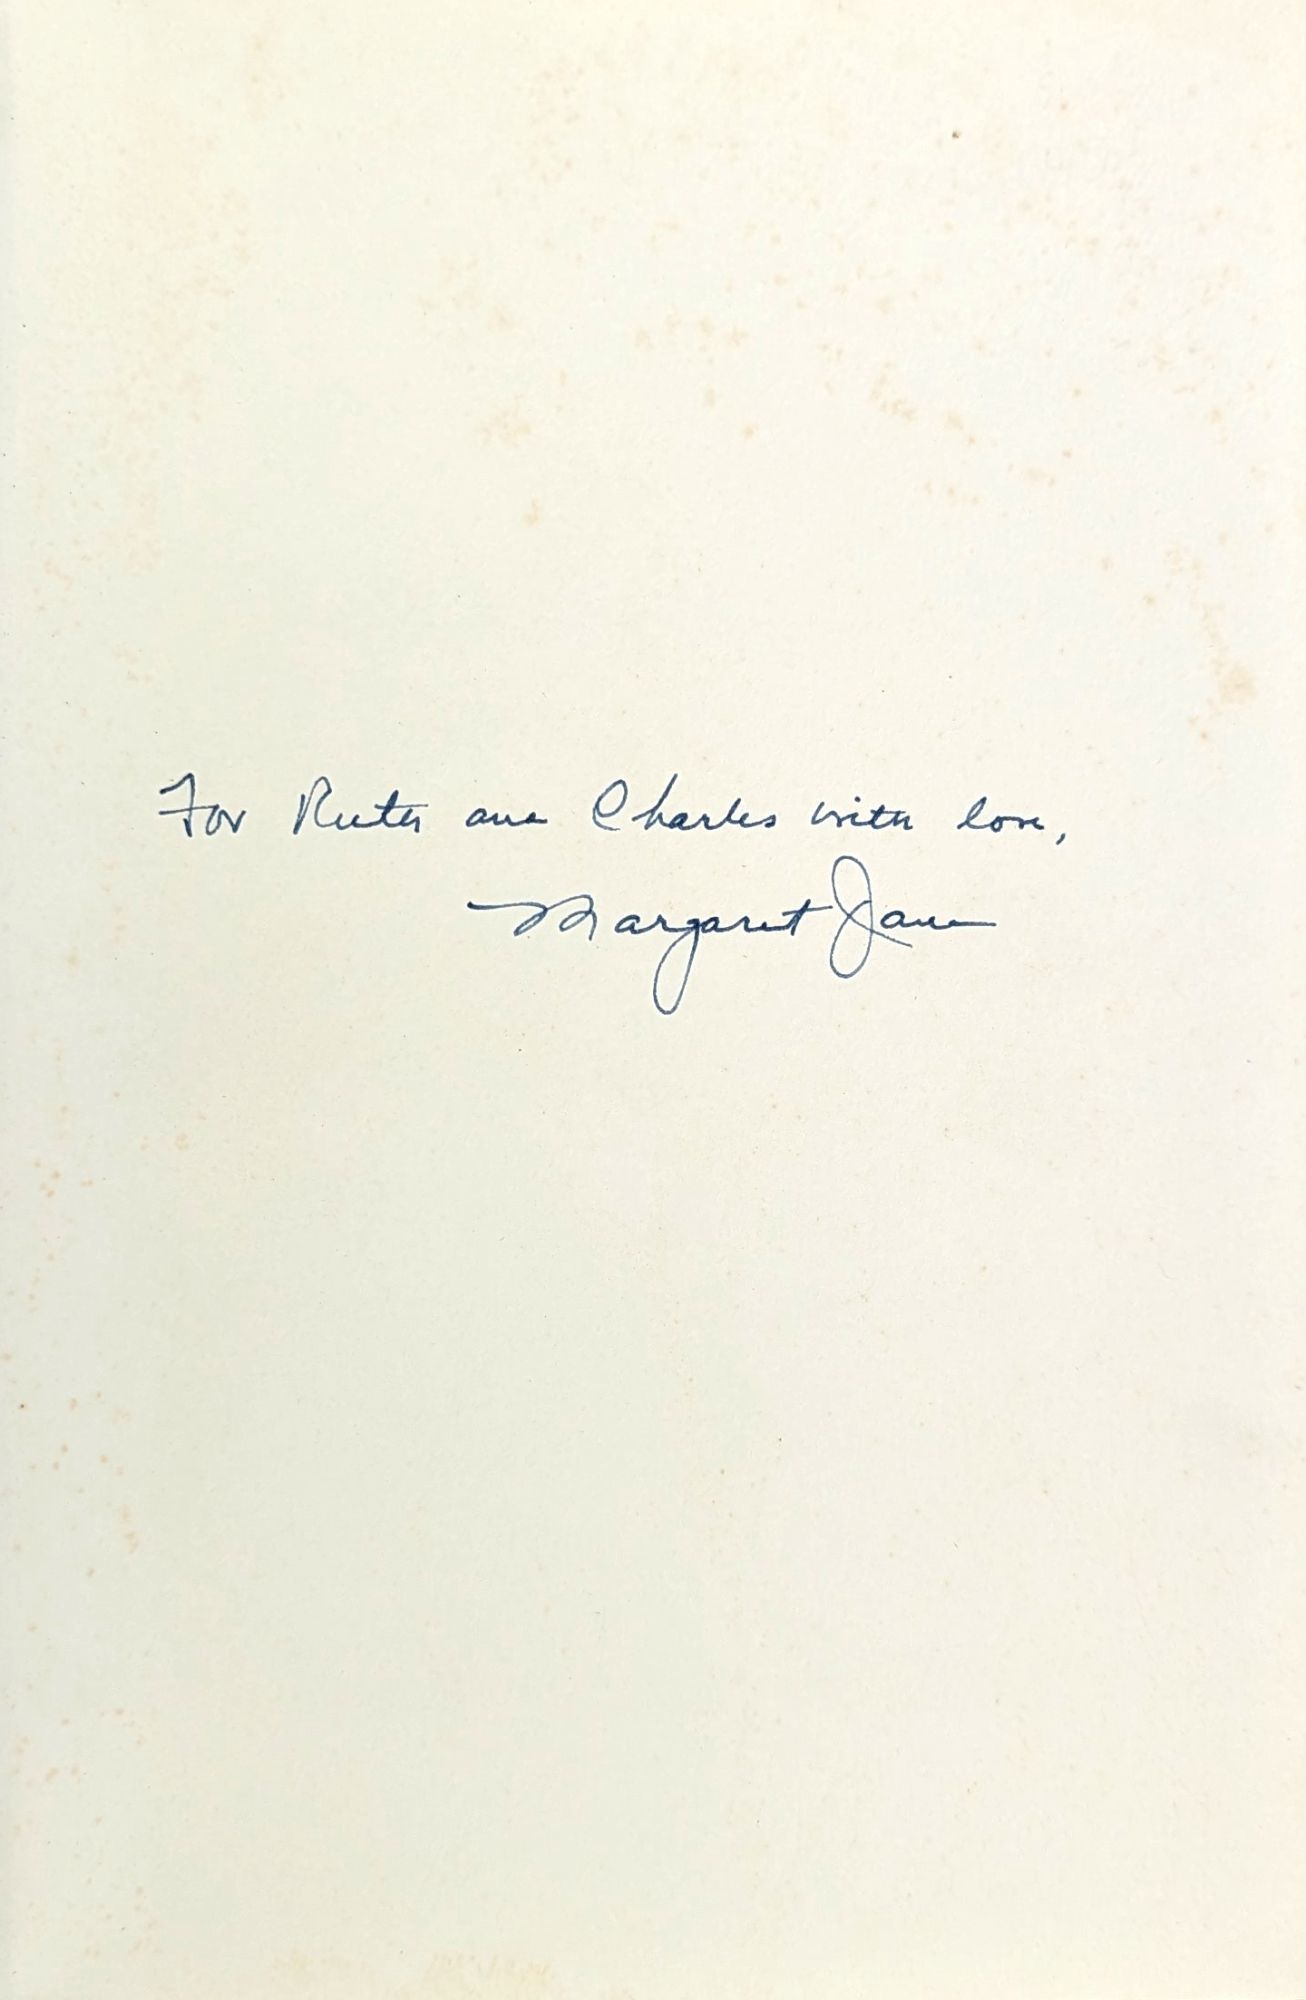 For Ruth and Charles with love,
Margaret Jane